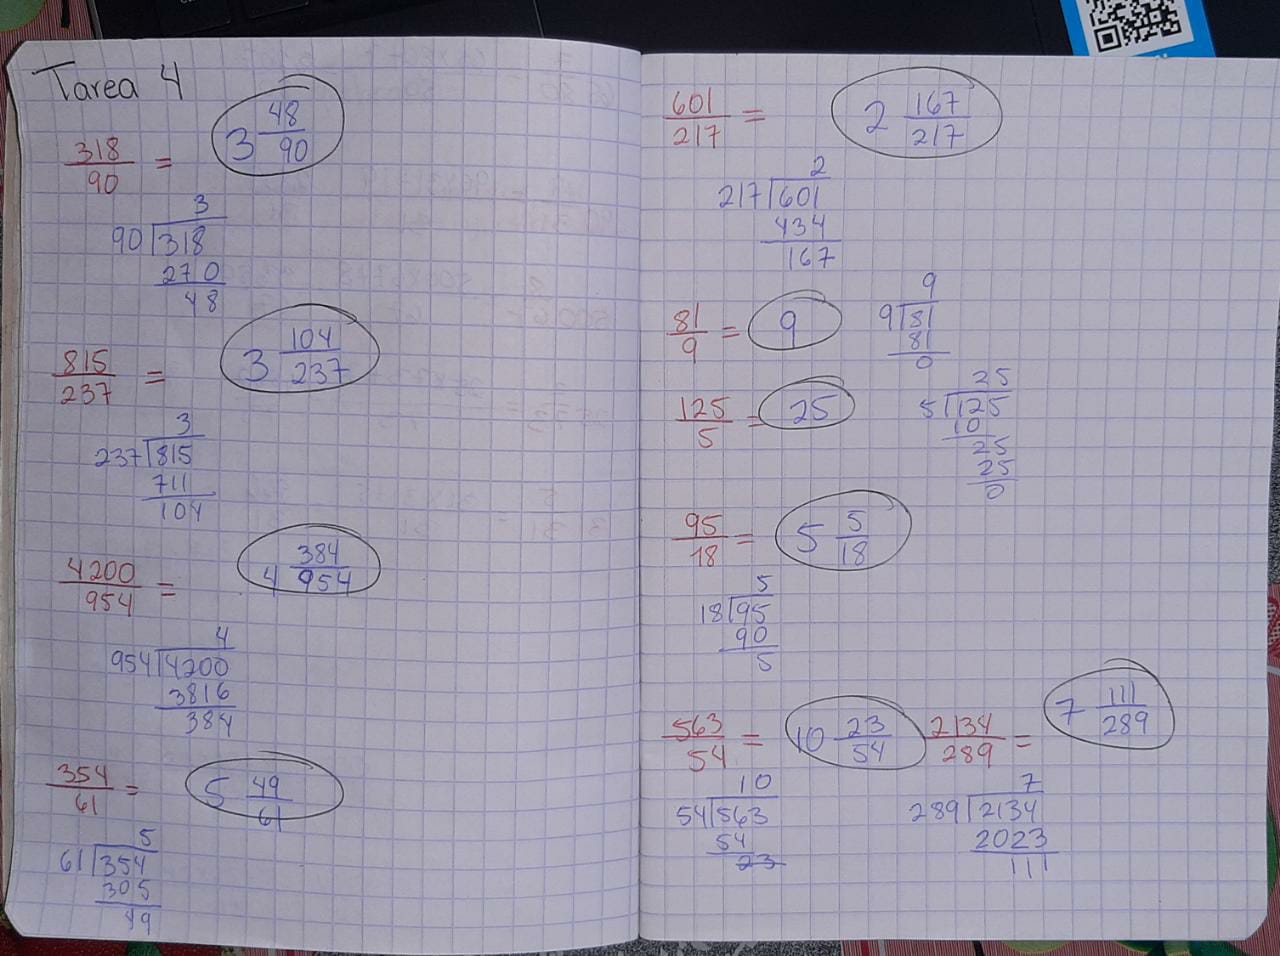 Tarea 4
318/90 = 3 48/90
3
90 318
270
48
815/237 = 3 104/237
3
237 815
711
104
4200/954 = 4 384/954
4
954 4200
3816
384
354/61 = 5 49/61
5
61 354
305
49
601/217 = 2 167/217
2
217 601
434
167
81/9 = 9
9
9 81
81
0
125/5 = 25
25
5 125
10
25
25
0
95/18 = 5 5/18
5
18 95
90
5
563/54 = 10 23/54
10
54 563
54
23
2134/289 = 7 111/289
7
289 2134
2023
111